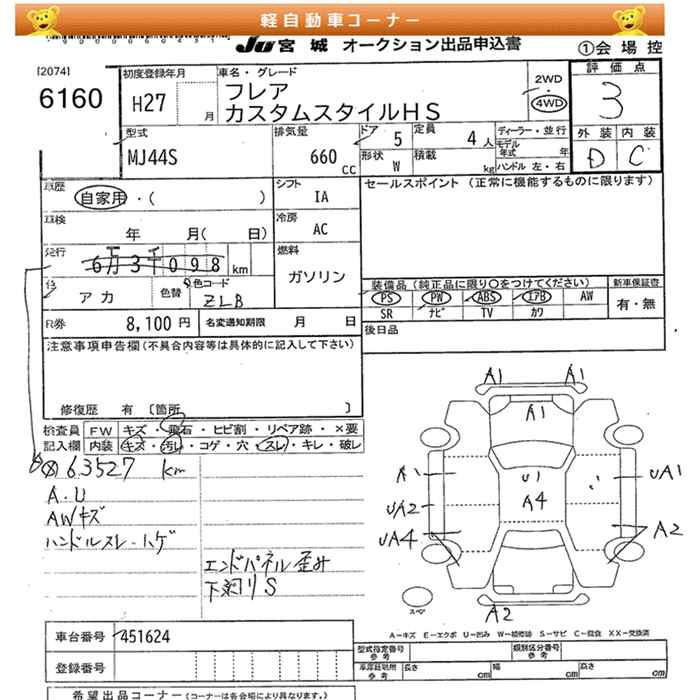 軽自動車コーナー
JU宮城 オークション出品申込書
①会場控
[2074]
6160
初度登録年月
H27 月
車名・グレード
フレア
カスタムスタイルHS
2WD
・
4WD
評価点
3
外装 内装
D C
型式
MJ44S
排気量
660 cc
ドア 5
定員 4人
形状 W
積載 kg
ディーラー・並行
モデル年式 年
ハンドル 左・右
車歴
自家用・( )
シフト
IA
セールスポイント (正常に機能するものに限ります)
車検
年 月( 日)
冷房
AC
走行
6万3千098 km
燃料
ガソリン
色
アカ
色替
色コード
ZLB
装備品 (純正品に限り○をつけてください)
新車保証書
PS PW ABS エアB AW
有・無
SR ナビ TV カワ
R券
8,100円
名変通知期限 月 日
後日品
注意事項申告欄(不具合内容等は具体的に記入して下さい)
修復歴 有 [箇所 ]
検査員
記入欄
FW キズ・飛石・ヒビ割・リペア跡・×要
内装 キズ・汚れ・コゲ・穴・スレ・キレ・破レ
63527 km
A.U
AWキズ
ハンドルスレ-ハゲ
エンドパネル歪み
下剥リS
A1 A1
A1
A1 U1 UA1
UA2 A4
UA4 A2
スペア
A2
A-キズ E-エクボ U-凹み W-補修跡 S-サビ C-腐食 XX-交換済
車台番号 451624
登録番号
型式指定番号
参考
類別区分番号
参考
車庫証明用
参考
長さ cm
幅 cm
高さ cm
希望出品コーナー(コーナーは各会場により異なります。)